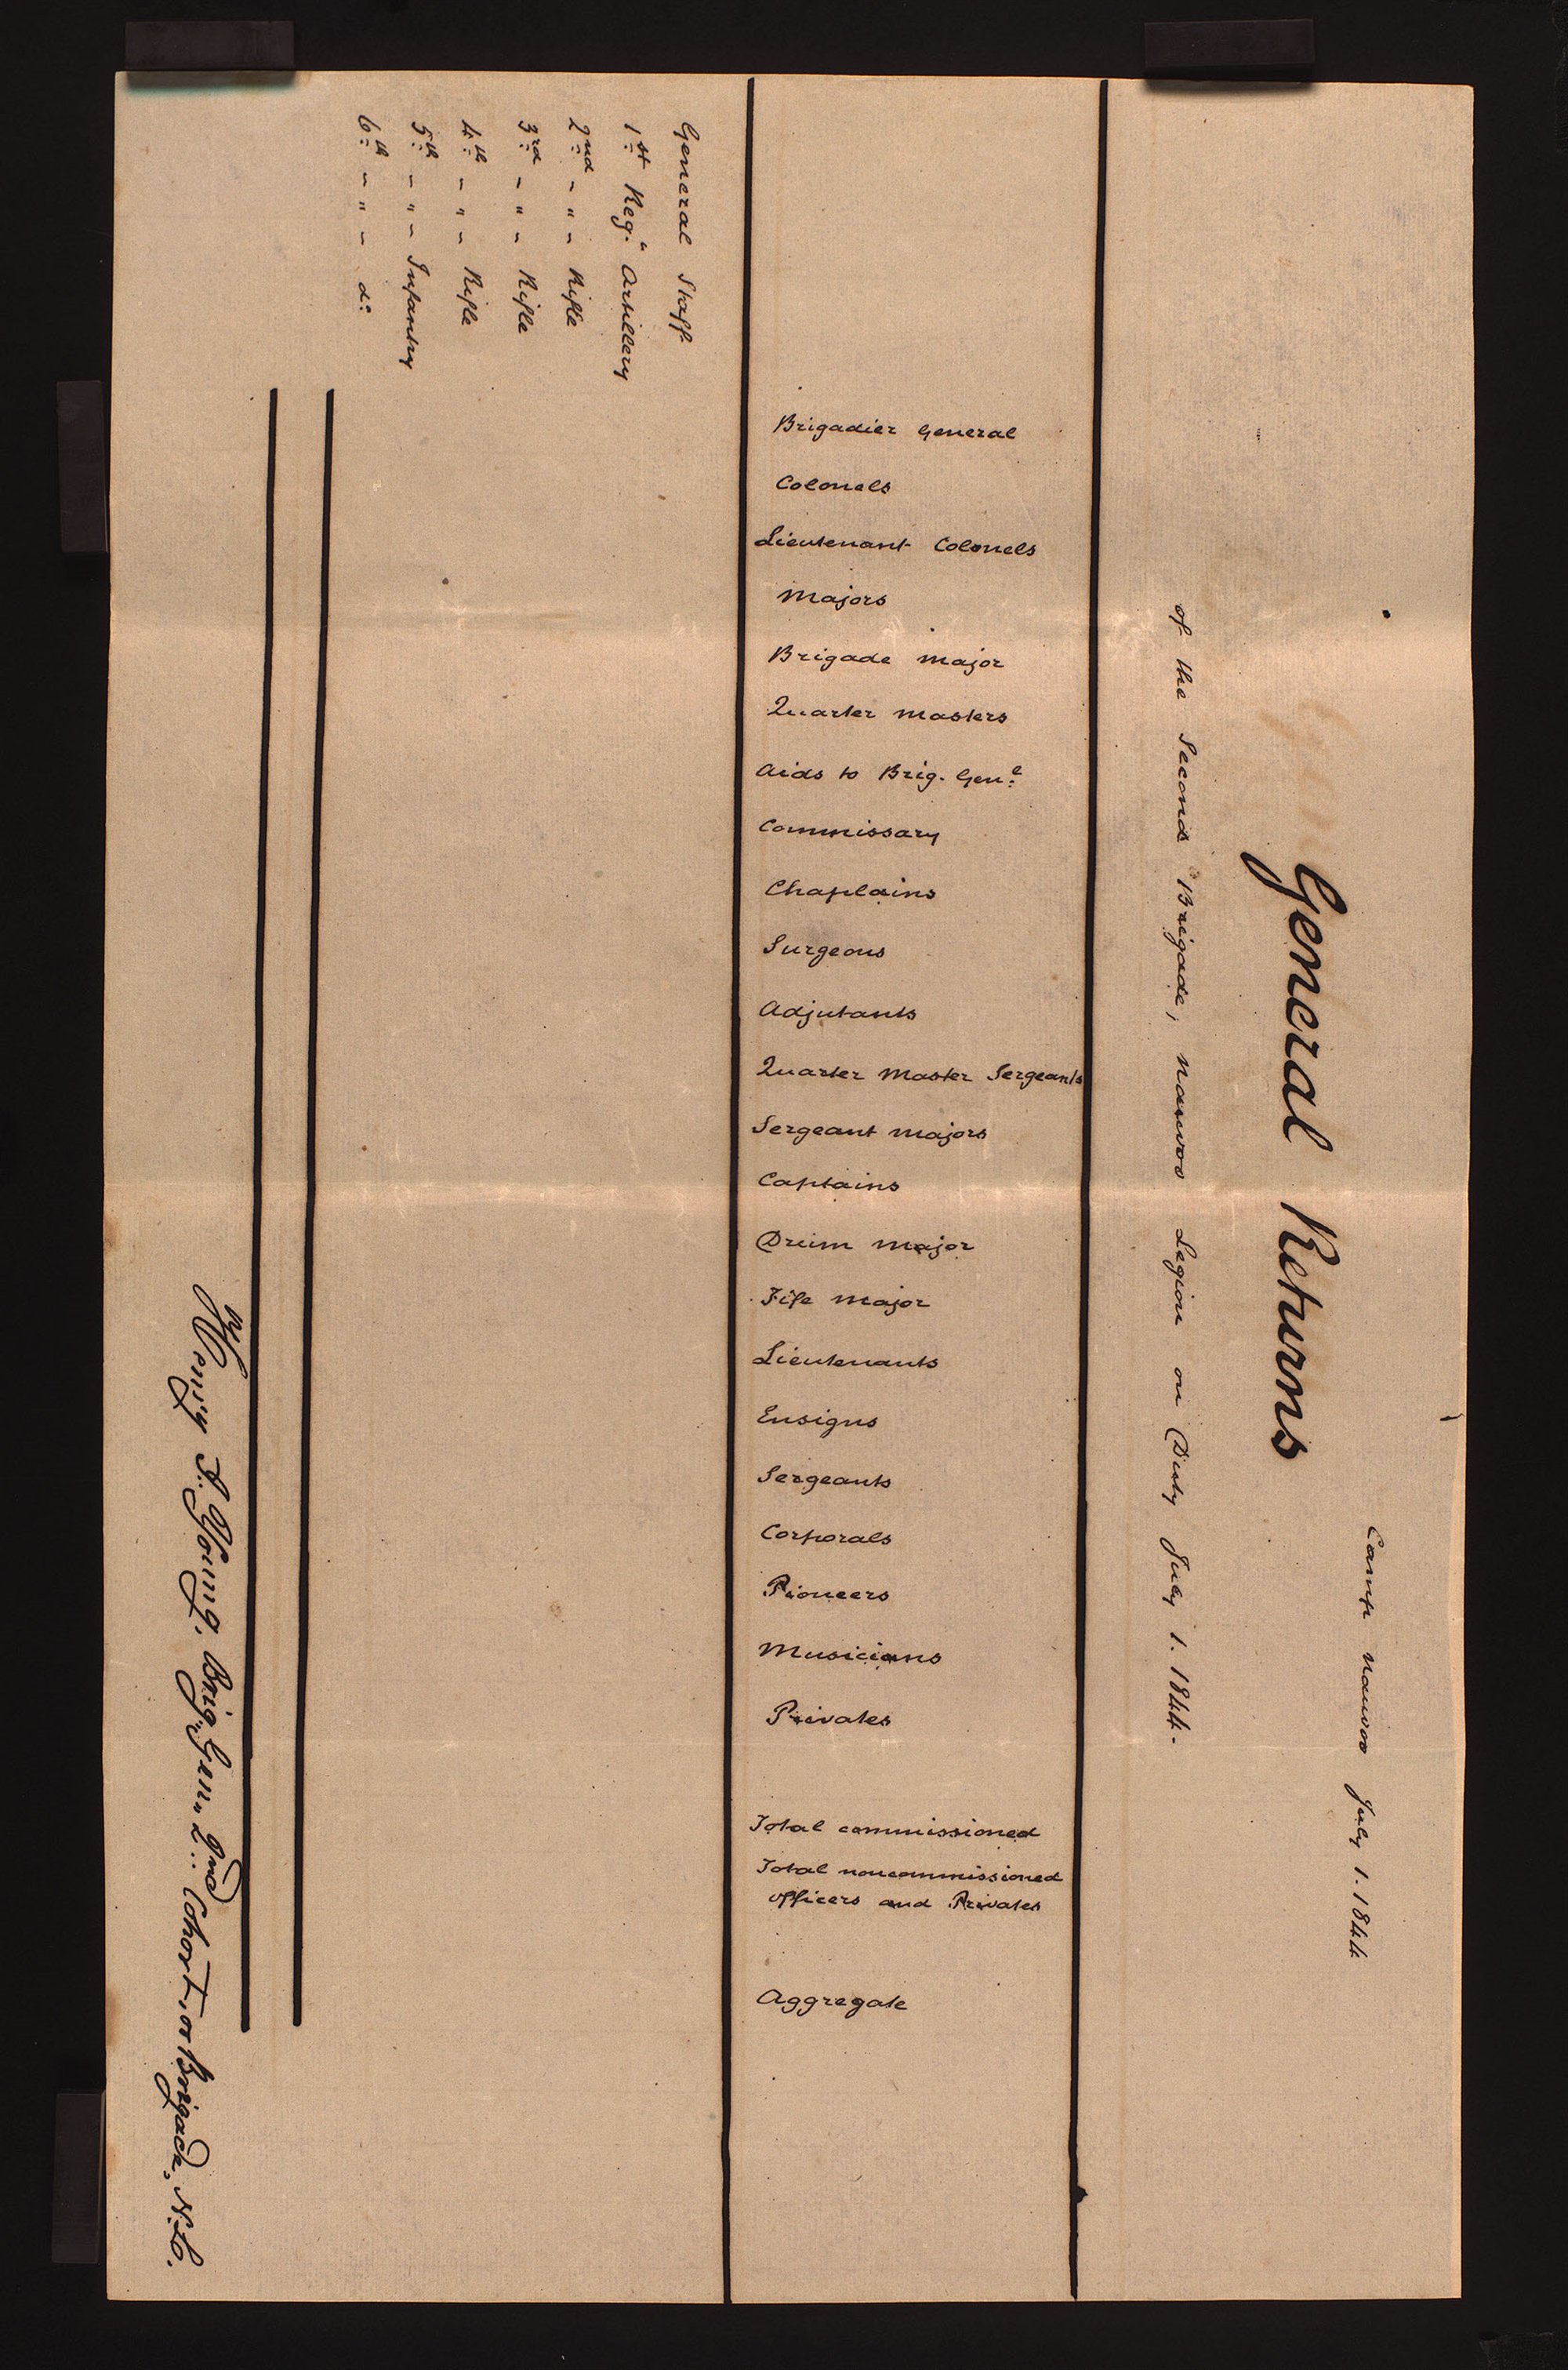 Camp Nauvoo July 1. 1844
General Returns
of the Second Brigade, Nauvoo Legion on Duty July 1. 1844.
Brigadier General
Colonels
Lieutenant Colonels
Majors
Brigade Major
Quarter Masters
Aids to Brig. Gen:l
Commissary
Chaplains
Surgeons
Adjutants
Quarter Master Sergeants
Sergeant Majors
Captains
Drum Major
Fife Major
Lieutenants
Ensigns
Sergeants
Corporals
Pioneers
Musicians
Privates
Total commissioned
Total noncommissioned
officers and Privates
Aggregate
General Staff
1st Reg. " Artillery
2nd - " - Rifle
3rd - " - Rifle
4th - " - Rifle
5th - " - Infantry
6th - " - do
Young, Brig. Gen. 2nd Cohort, or Brigade, N.L.